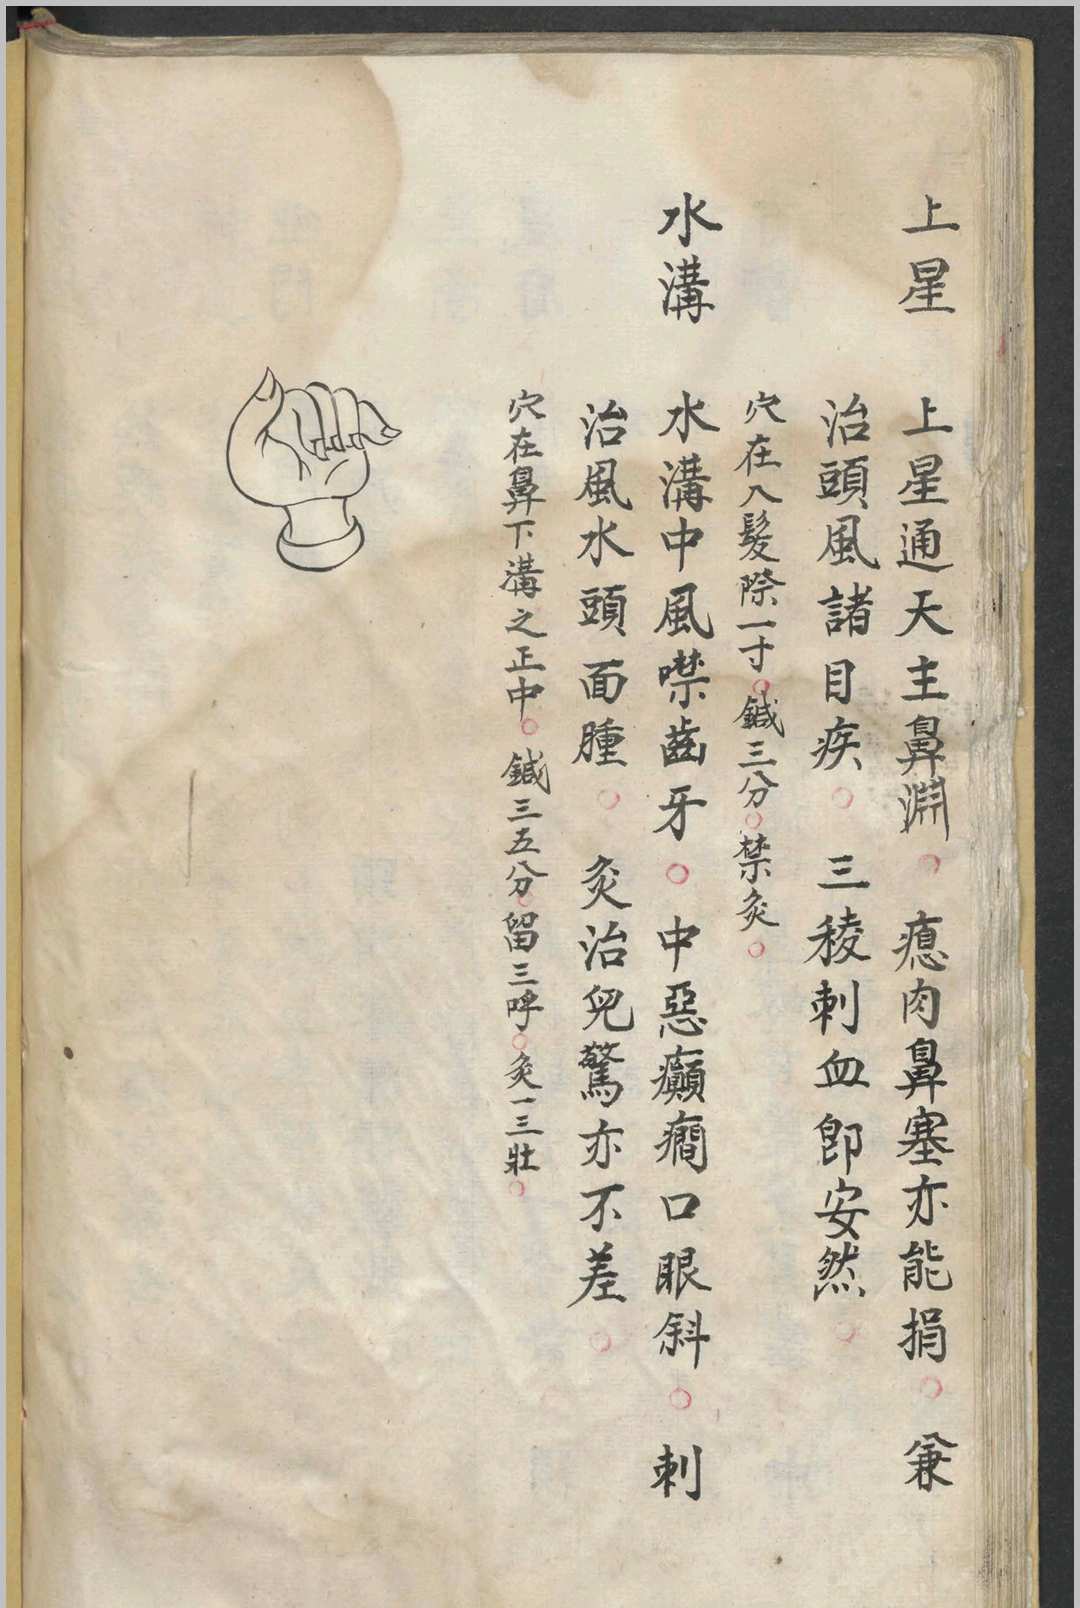 上星　上星通天主鼻淵○瘜肉鼻塞亦能捐○兼
治頭風諸目疾○三稜刺血即安然○
穴在入髮際一寸○鍼三分○禁灸○
水溝　水溝中風噤齒牙○中惡癲癇口眼斜○刺
治風水頭面腫○灸治兒驚亦不差○
穴在鼻下溝之正中○鍼三五分○留三呼○灸一三壯○